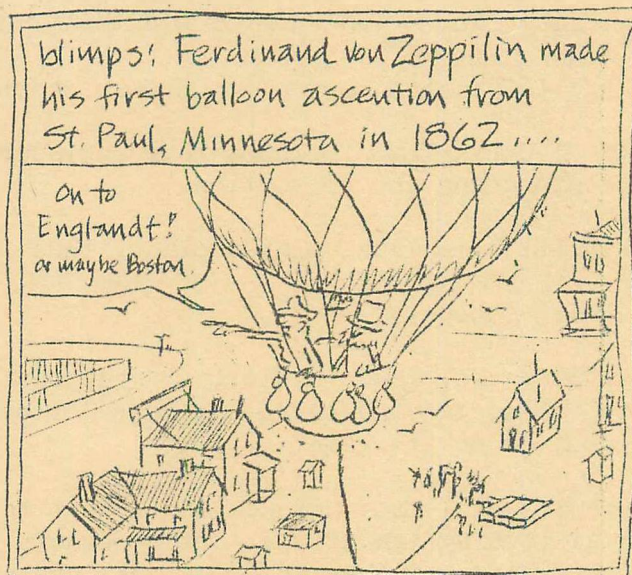 blimps! Ferdinand von Zeppilin made
his first balloon ascention from
St. Paul, Minnesota in 1862....
On to
Englandt!
or maybe Boston.